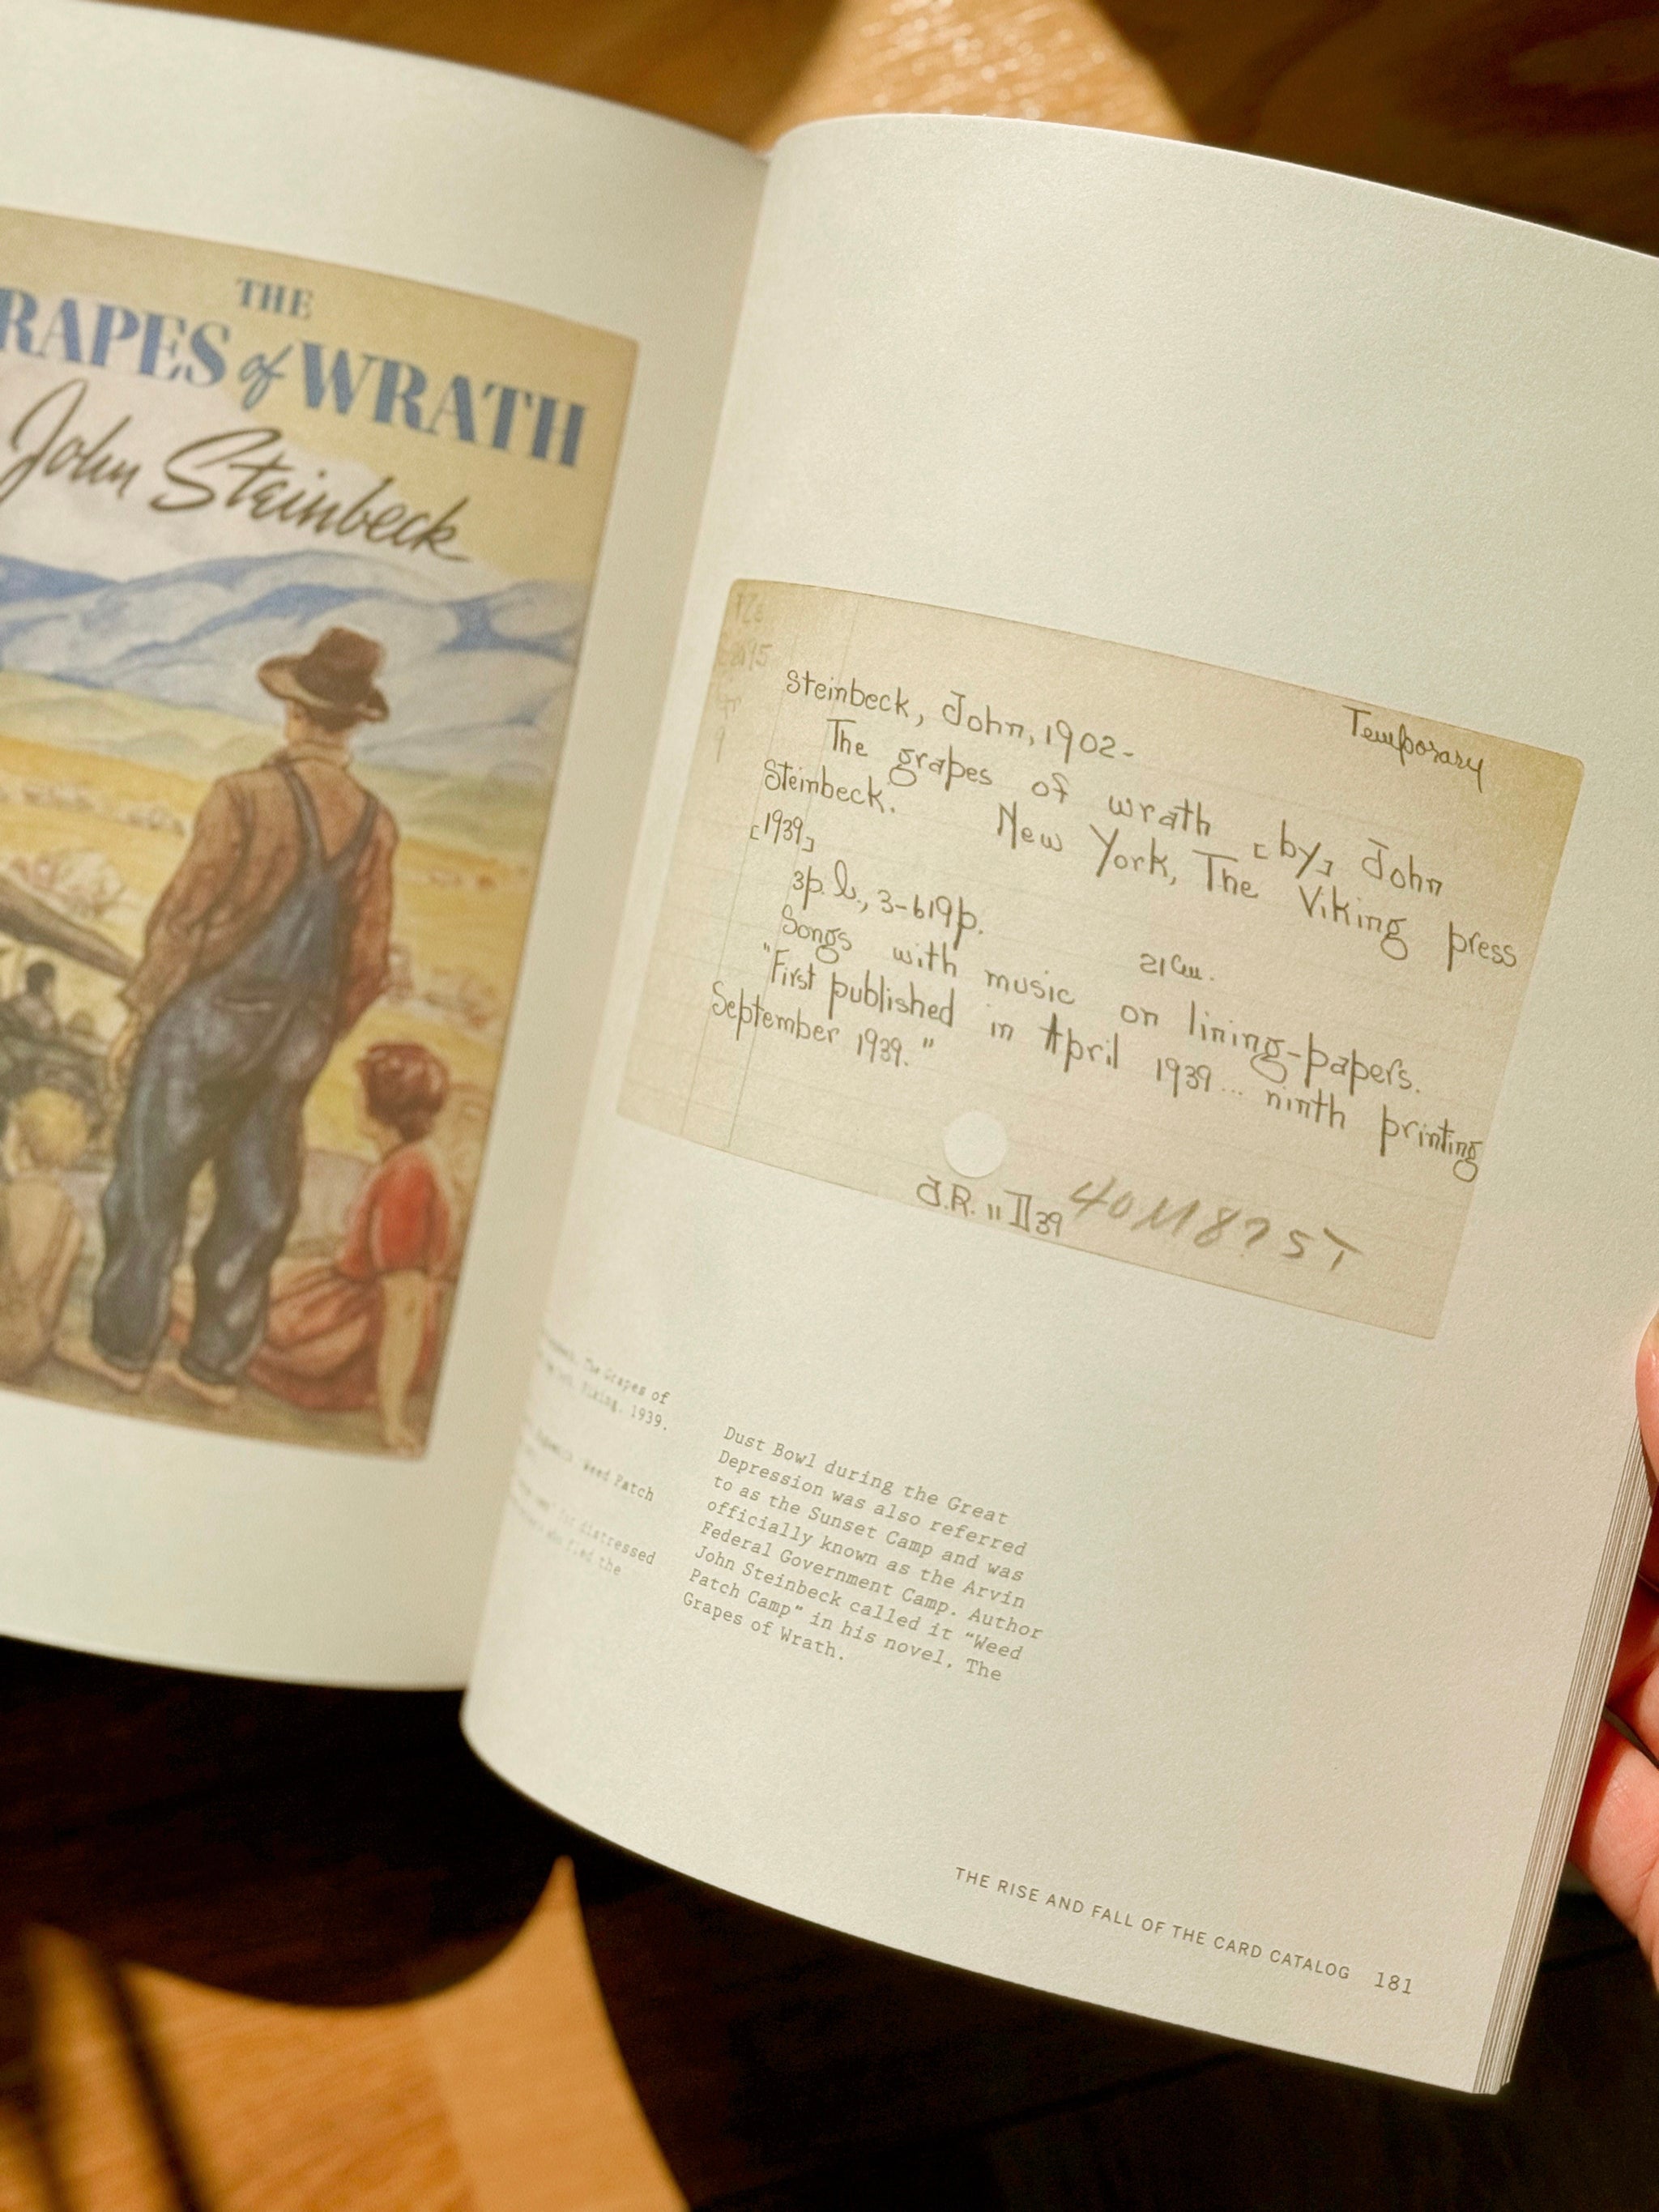 THE
RAPES of WRATH
John Steinbeck
Temporary
Steinbeck, John, 1902-
The grapes of wrath [by] John
Steinbeck. New York, The Viking press
[1939]
3p.l., 3-619p. 21cm.
Songs with music on lining-papers.
"First published in April 1939... ninth printing
September 1939."
J.R. 11 II 39 40M875T
The Grapes of
Viking, 1939.
Weed Patch
distressed
who fled the
Dust Bowl during the Great
Depression was also referred
to as the Sunset Camp and was
officially known as the Arvin
Federal Government Camp. Author
John Steinbeck called it “Weed
Patch Camp” in his novel, The
Grapes of Wrath.
THE RISE AND FALL OF THE CARD CATALOG 181